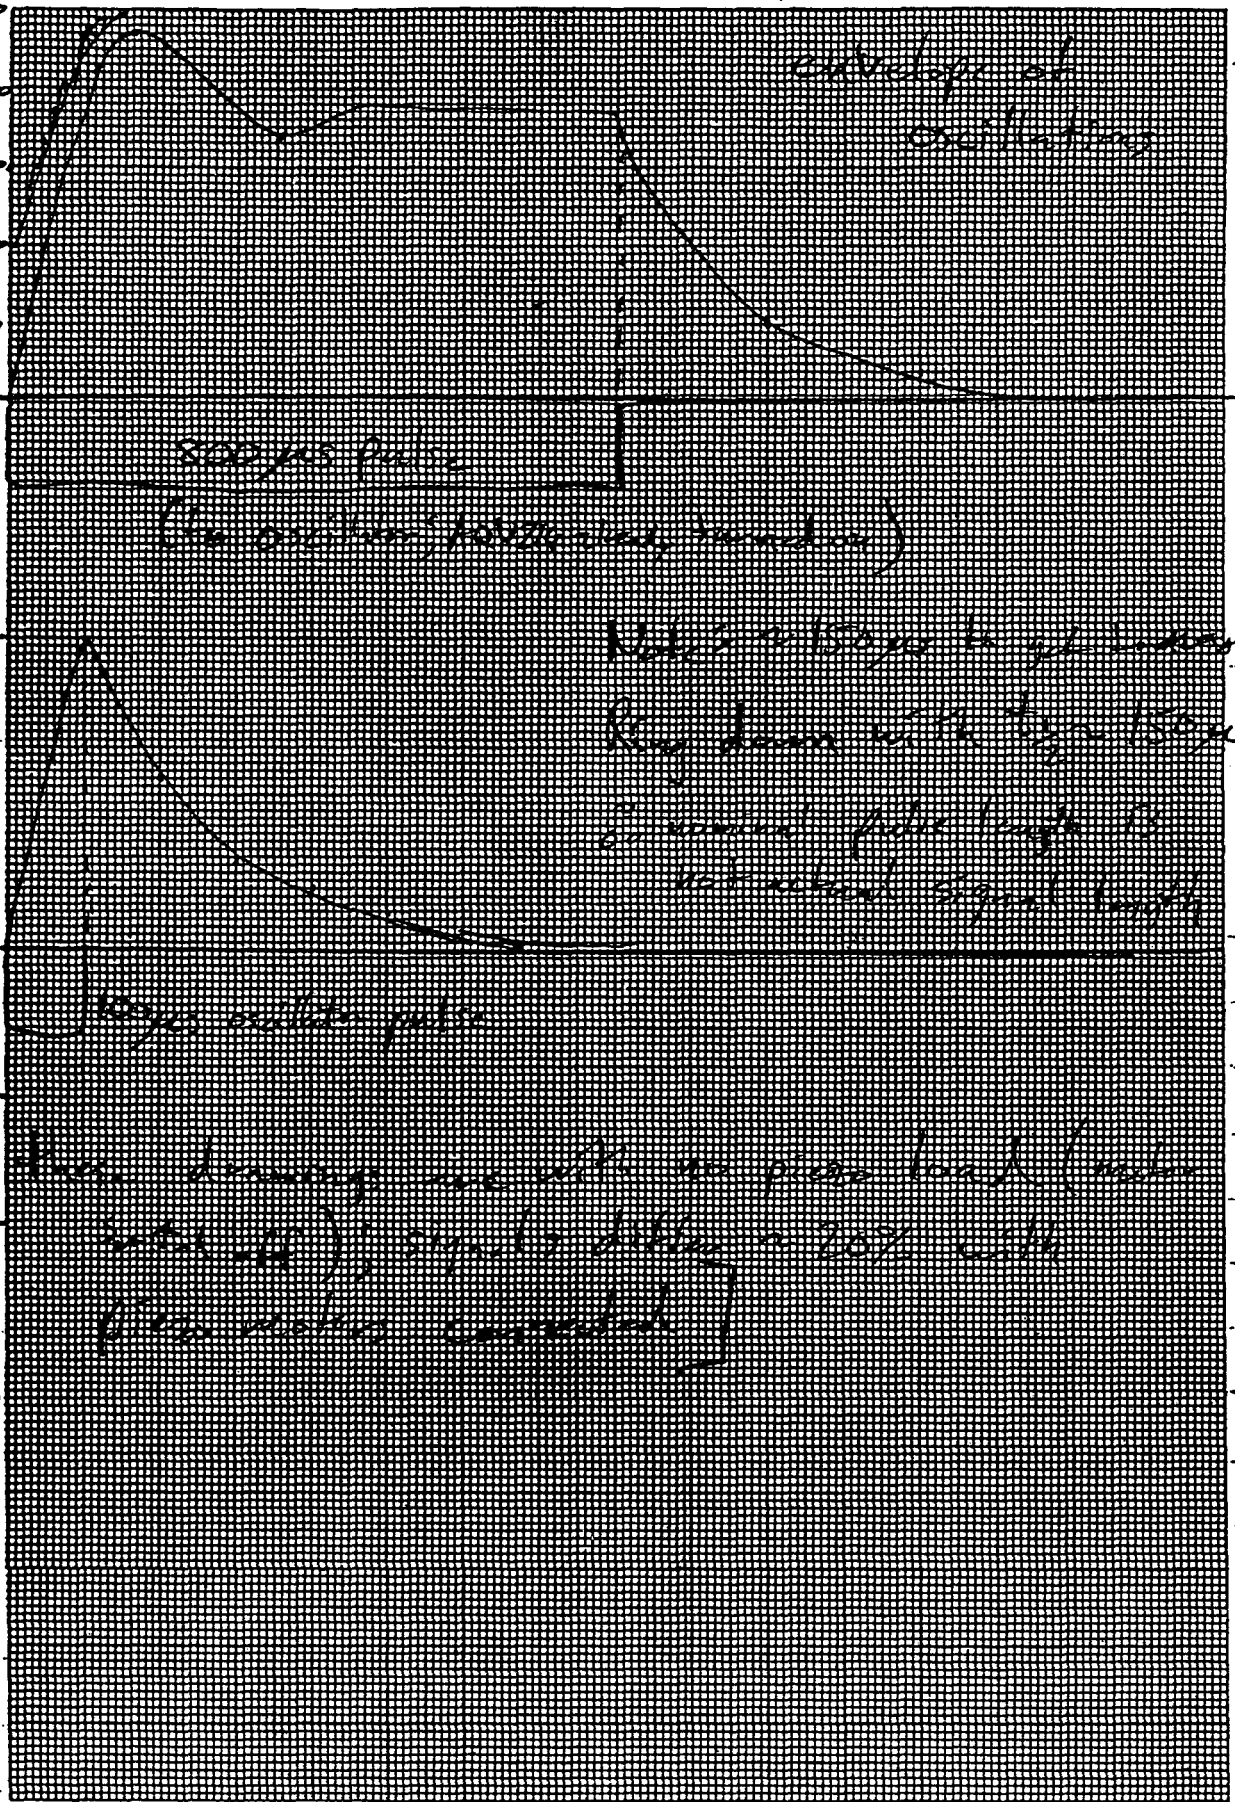 envelope of
oscillations
800 µs pulse
(to oscillator, turned on)
Note: ~ 150 µs to get
Ring down with t½ ~ 150 µ
∴ nominal pulse length is
not actual signal length
100 µs oscillator pulse
these drawings are with no piezo load (motor
off); signals differ ~ 20% with
piezo motors connected]